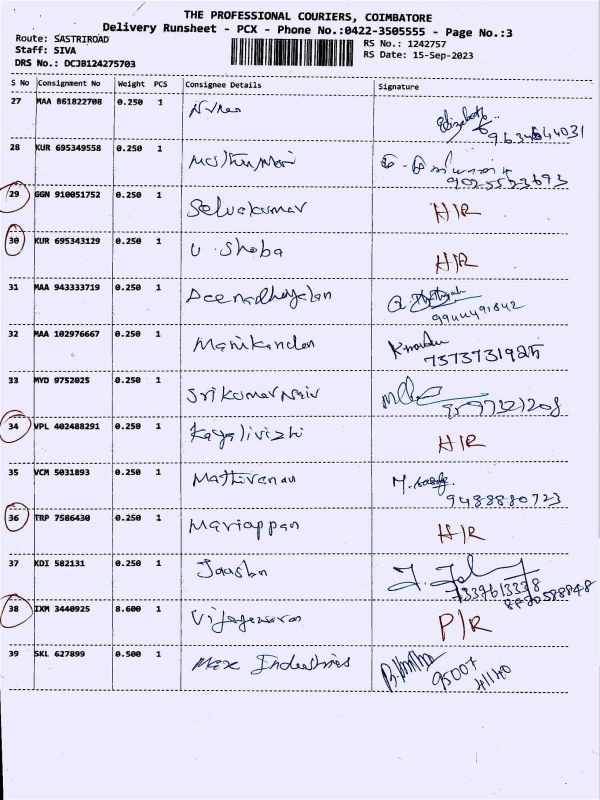 THE PROFESSIONAL COURIERS, COIMBATORE
Delivery Runsheet - PCX - Phone No.:0422-3505555 - Page No.:3
Route: SASTRIROAD
Staff: SIVA
DRS No.: DCJB124275703
RS No.: 1242757
RS Date: 15-Sep-2023
S No Consignment No Weight PCS Consignee Details Signature
27 MAA 861822708 0.250 1 Elizabeth
28 KUR 695349558 0.250 1
9025523693
29 GGN 910051752 0.250 1 Selvakumar H/R
30 KUR 695343129 0.250 1 U. Shoba H/R
31 MAA 943333719 0.250 1 Deenadhayalan
9944491842
32 MAA 102976667 0.250 1 Manikandan
33 MYD 9752025 0.250 1 Srikumar Nair
34 VPL 402488291 0.250 1 Kayalivizhi H/R
35 VCM 5031893 0.250 1 Mathivanan
9488880723
36 TRP 7586430 0.250 1 Mariappan H/R
37 KDI 582131 0.250 1
38 IXM 3440925 8.600 1 P/R
39 SKL 627899 0.500 1 Max Industries
95007
41140